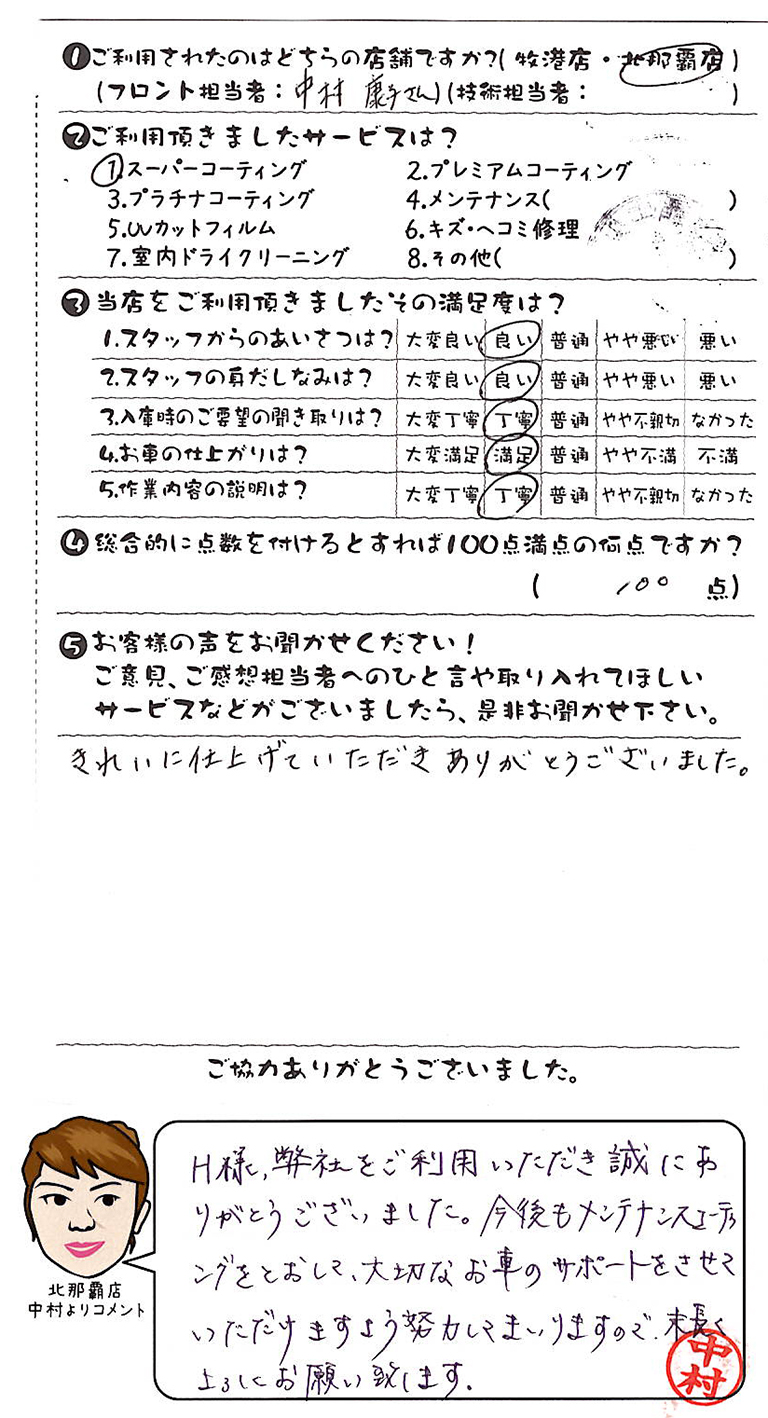 ❶ご利用されたのはどちらの店舗ですか?(牧港店・北那覇店)
(フロント担当者:中村 康子さん)(技術担当者: )
❷ご利用頂きましたサービスは?
1.スーパーコーティング 2.プレミアムコーティング
3.プラチナコーティング 4.メンテナンス( )
5.UVカットフィルム 6.キズ・ヘコミ修理
7.室内ドライクリーニング 8.その他( )
❸当店をご利用頂きましたその満足度は?
1.スタッフからのあいさつは? 大変良い 良い 普通 やや悪い 悪い
2.スタッフの身だしなみは? 大変良い 良い 普通 やや悪い 悪い
3.入庫時のご要望の聞き取りは? 大変丁寧 丁寧 普通 やや不親切 なかった
4.お車の仕上がりは? 大変満足 満足 普通 やや不満 不満
5.作業内容の説明は? 大変丁寧 丁寧 普通 やや不親切 なかった
❹総合的に点数を付けるとすれば100点満点の何点ですか?
( 100 点)
❺お客様の声をお聞かせください!
ご意見、ご感想担当者へのひと言や取り入れてほしい
サービスなどがございましたら、是非お聞かせ下さい。
きれいに仕上げていただきありがとうございました。
ご協力ありがとうございました。
H様、弊社をご利用いただき誠にあ
りがとうございました。今後もメンテナンスコーティ
ングをとおして、大切なお車のサポートをさせて
いただけますよう努力してまいりますので、末長く
よろしくお願い致します。
北那覇店
中村よりコメント
中村